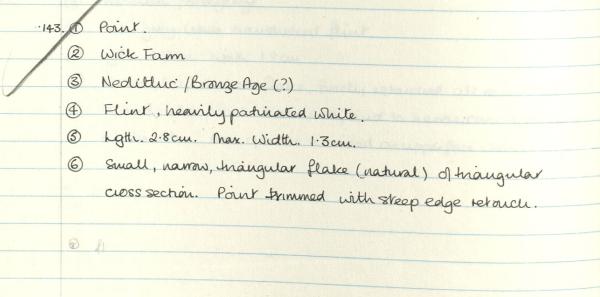 143. ① Point.
② Wick Farm
③ Neolithic / Bronze Age (?)
④ Flint, heavily patinated white.
⑤ Lgth. 2.8cm. Max. Width. 1.3cm.
⑥ Small, narrow, triangular flake (natural) of triangular
cross section. Point trimmed with steep edge retouch.